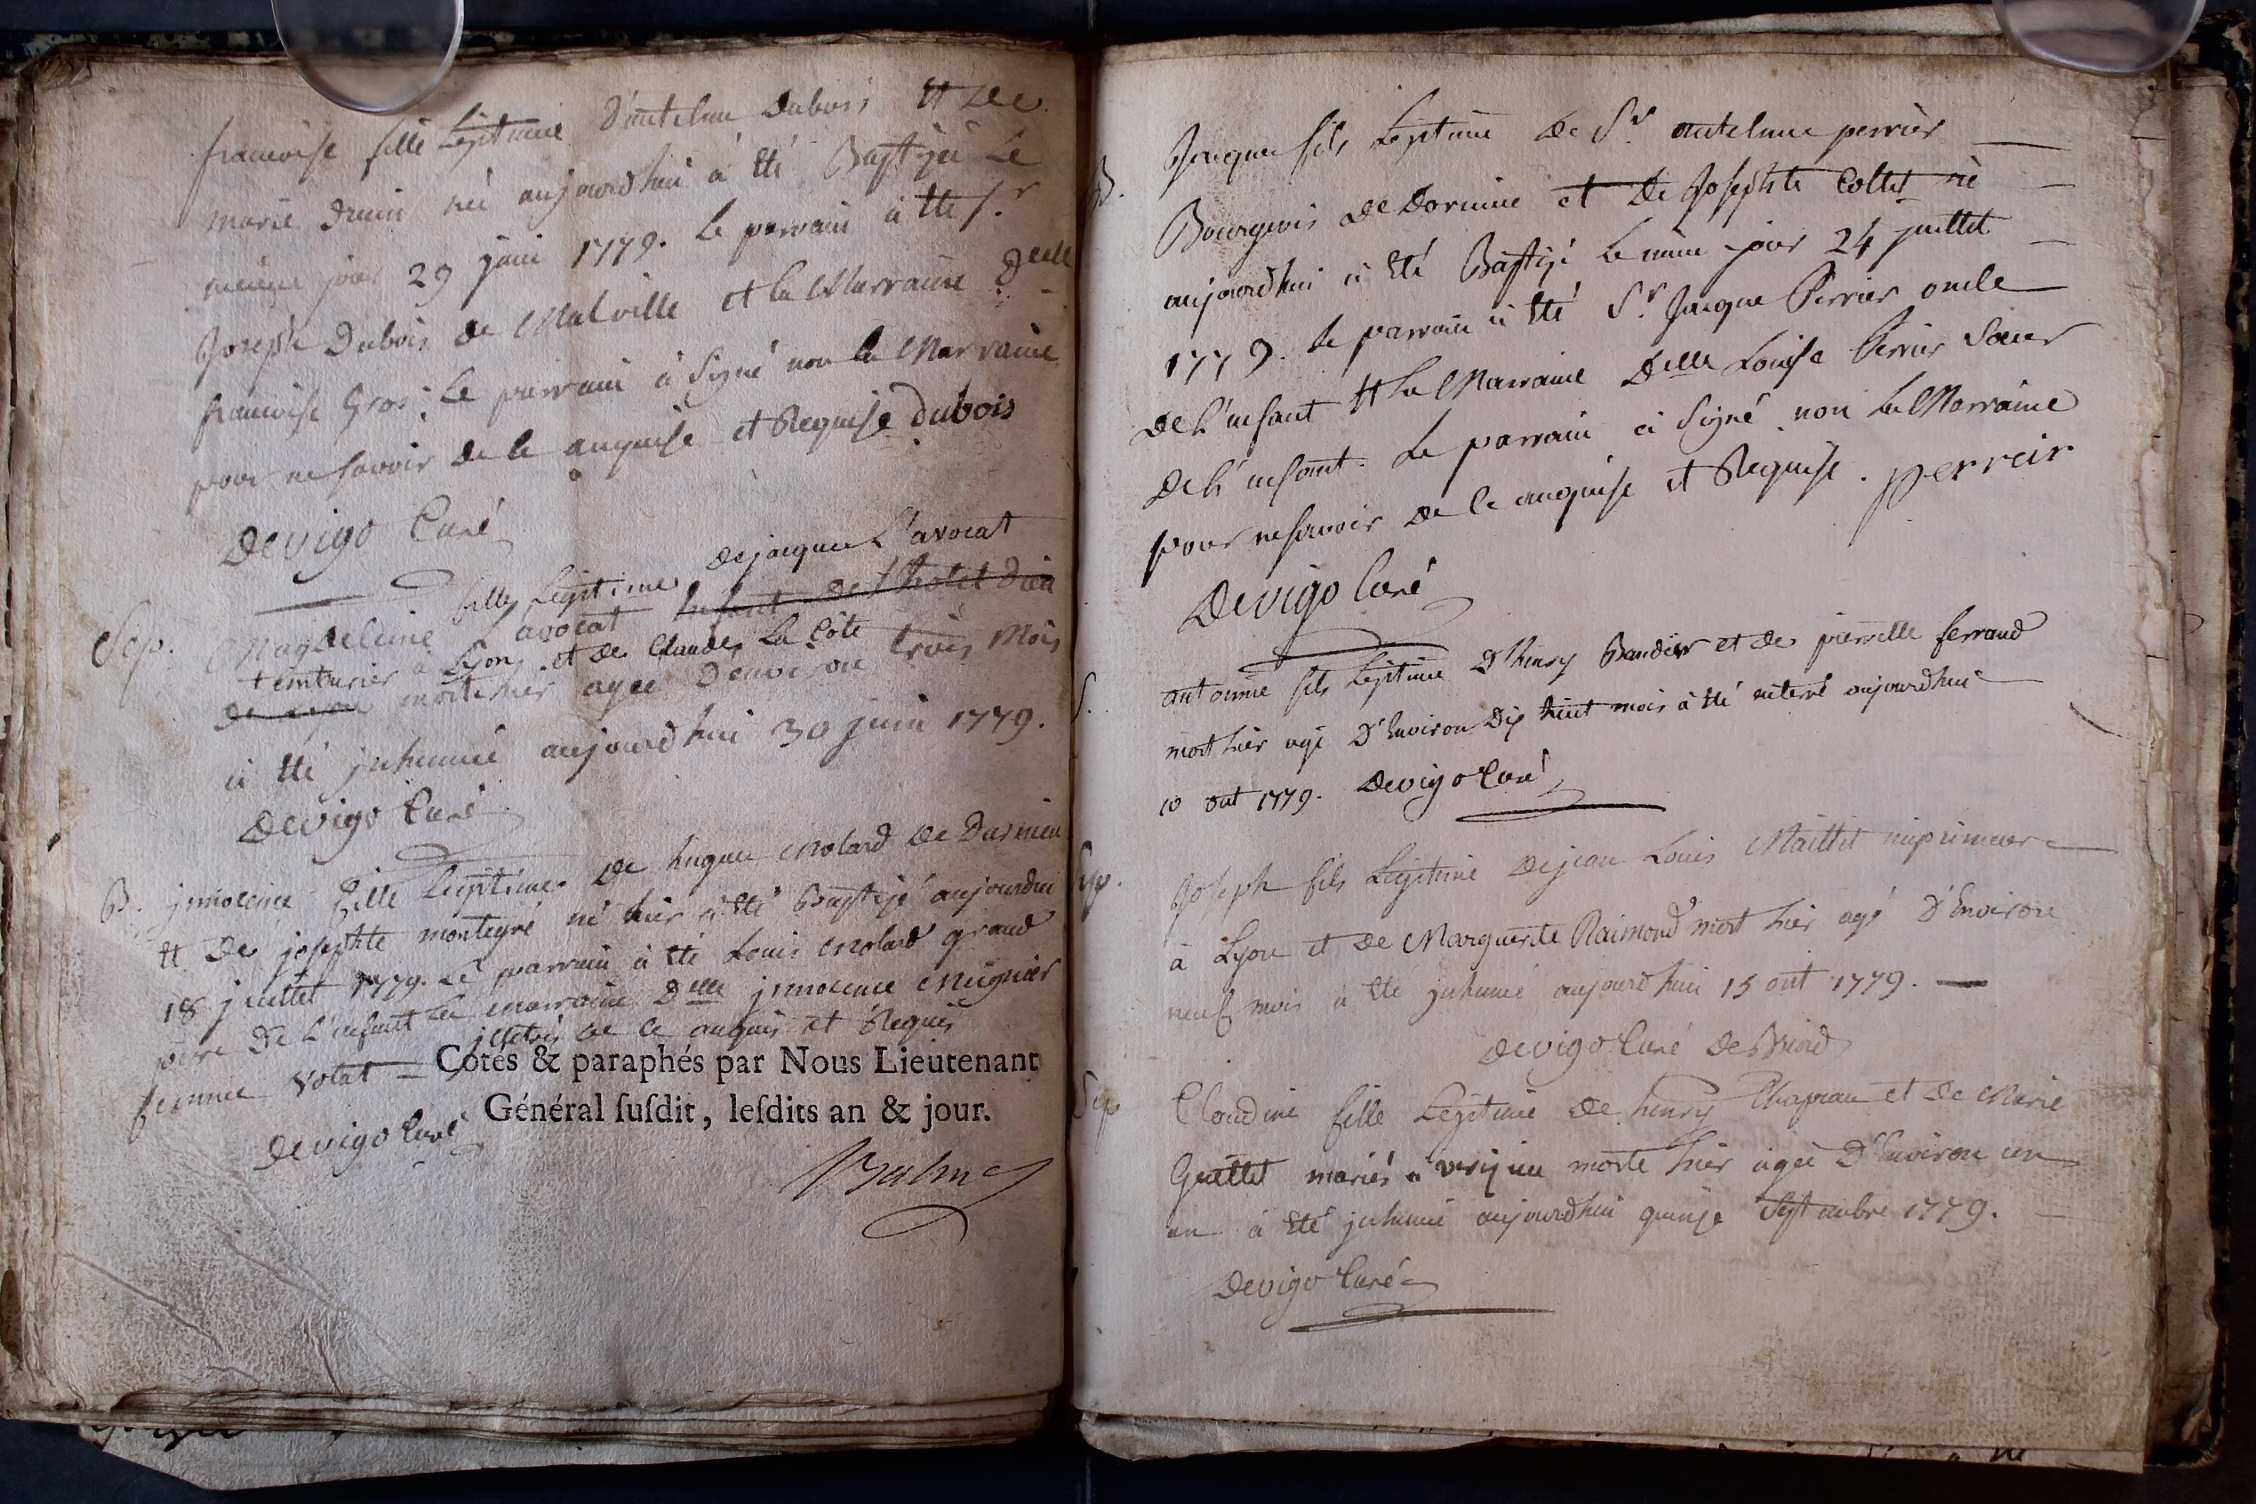 francoise fille Legitime D'antelme Dubois et de
marie Druin née aujourdhui à été Baptisée Le
même jour 29 juin 1779. Le parrain à été Sr
Joseph Dubois de Malville et la Marraine Delle
francoise Gros. Le parrain à Signé non la Marraine
pour ne savoir de ce enquise et Requise dubois
Devigo Curé
fille Legitime de jacque L'avocat
Sep. Magdeleine L'avocat Enfant de l'hotel Dieu
teinturier à Lyon et de Claude La Côte
de Lyon morte hier agée Denviron trois Mois
à été inhumée aujourdhui 30 juin 1779.
Devigo Curé
B. innocence fille Legitime de hugue Molard de Darmieu
et de josephte montagné né hier à été Baptisé aujourdhui
18 juillet 1779. Le parrain à été Louis Molard grand
pere de L'enfant La marraine Delle innocence Meignier
femme Volat = illetrés de ce enquis et Requis
Cotés & paraphés par Nous Lieutenant
Général ſuſdit, leſdits an & jour.
Devigo Curé
Balme
B. Jacque fils Legitime de Sr antelme perrier
Bourgeois de Dormieu et De Josephte Collet né
aujourdhui à été Baptisé Le même jour 24 juillet
1779. Le parrain à été Sr Jacque Perrier oncle
de L'enfant et la Marraine Delle Louise Perrier Sœur
de L'enfant. Le parrain à Signé non la Marraine
pour ne savoir de ce enquise et Requise. perreir
Devigo Curé
S. antoine fils Legitime D'henry Baudier et de pierrette ferrand
mort hier agé D'Environ Dix huit mois à été enterré aujourdhui
10 out 1779. Devigo Curé
Sep. Joseph fils Legitime de jean Louis Maillet imprimeur
à Lyon et de Marguerite Raimond mort hier agé D'Environ
neuf mois à été inhumé aujourdhui 15 out 1779.
Devigo Curé de Briord
Sep Claudine fille Legitime de henry Chapeau et de Marie
Guillet mariés à verizieu morte hier agée D'Environ un
an à été inhumée aujourdhui quinze Septembre 1779.
Devigo Curé